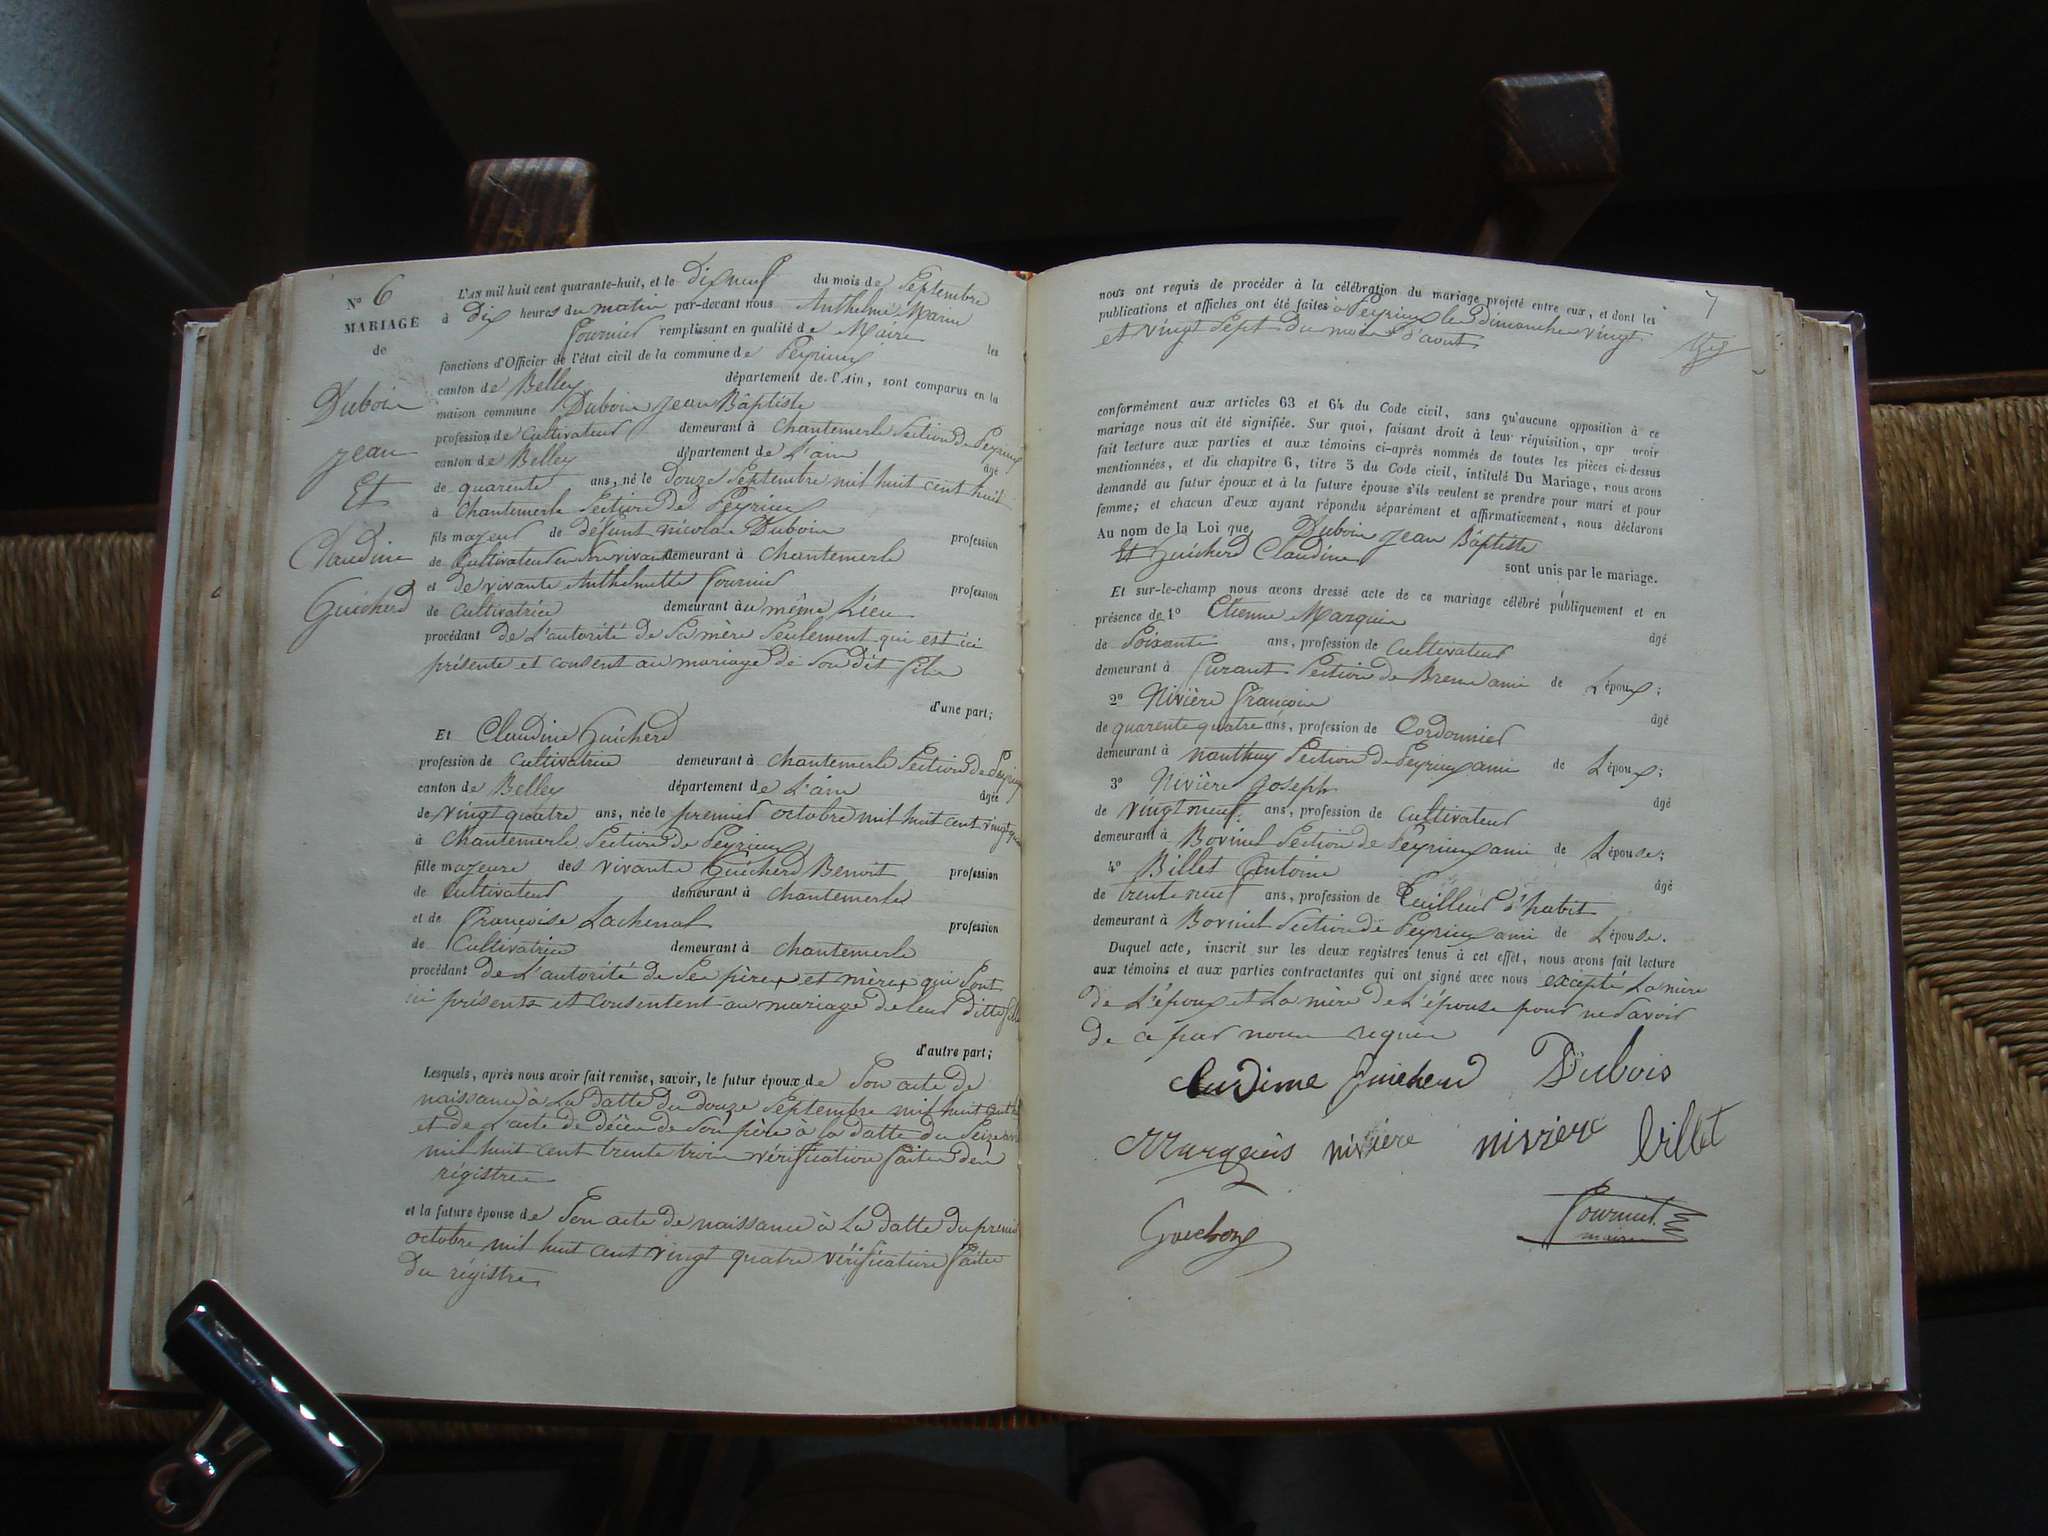 Nº 6
MARIAGE
de
Dubois
jean
Et
Claudine
Guicherd
L'AN mil huit cent quarante-huit, et le dixneuf du mois de Septembre
à dix heures du matin par-devant nous Anthelme Marie
fournier remplissant en qualité de Maire les
fonctions d'Officier de l'état civil de la commune de Peyrieux
canton de Belley département de l'Ain, sont comparus en la
maison commune Dubois jean Bâptiste
profession de cultivateur demeurant à chantemerle Section de Peyrieux
canton de Belley département de L'ain âgé
de quarente ans, né le douze Septembre mil huit cent huit
à Chantemerle Section de Peyrieux
fils majeur de défunt nicolas Dubois profession
de Cultivateur en son vivant demeurant à chantemerle
et de vivante Anthelmette fournier profession
de cultivatrice demeurant au même Lieu
procédant de L'autorité de Sa mère Seulement qui est ici
présente et consent au mariage de Son dit fils
d'une part;
Et Claudine Guicherd
profession de cultivatrice demeurant à chantemerle Section de Peyrieux
canton de Belley département de L'ain âgée
de vingt quatre ans, née le premier octobre mil huit cent vingt quatre
à Chantemerle Section de Peyrieux
fille majeure des vivants Guicherd Benoit profession
de Cultivateur demeurant à chantemerle
et de françoise Lachenal profession
de Cultivatrice demeurant à chantemerle
procédant de L'autorité de Ses père et mère qui Sont
ici présents et consentent au mariage de leur ditte fille
d'autre part;
Lesquels, après nous avoir fait remise, savoir, le futur époux de Son acte de
naissance à La datte du douze Septembre mil huit cent huit
et de L'acte de décès de Son père à la datte du Seize
mil huit cent trente trois vérification faite des
régistres
et la future épouse de Son acte de naissance à La datte du premier
octobre mil huit cent vingt quatre vérification faite
du régistre
7
nous ont requis de procéder à la célébration du mariage projeté entre eux, et dont les
publications et affiches ont été faites à Peyrieux les dimanches vingt
et vingt Sept du mois d'aout
conformément aux articles 63 et 64 du Code civil, sans qu'aucune opposition à ce
mariage nous ait été signifiée. Sur quoi, faisant droit à leur réquisition, apr avoir
fait lecture aux parties et aux témoins ci-après nommés de toutes les pièces ci-dessus
mentionnées, et du chapitre 6, titre 5 du Code civil, intitulé Du Mariage, nous avons
demandé au futur époux et à la future épouse s'ils veulent se prendre pour mari et pour
femme; et chacun d'eux ayant répondu séparément et affirmativement, nous déclarons
Au nom de la Loi que Dubois jean Bâptiste
Et Guicherd Claudine
sont unis par le mariage.
Et sur-le-champ nous avons dressé acte de ce mariage célébré publiquement et en
présence de 1º Etienne Marquis âgé
de Soixante ans, profession de cultivateur
demeurant à Section de Brens ami de L'époux;
2º Nivière françois âgé
de quarente quatre ans, profession de Cordonnier
demeurant à nanthuy Section de Peyrieux ami de L'époux;
3º Nivière Joseph âgé
de vingt neuf ans, profession de cultivateur
demeurant à Bovinel Section de Peyrieux ami de L'épouse;
4º Billet Antoine âgé
de trente neuf ans, profession de tailleur d'habit
demeurant à Bovinel Section de Peyrieux ami de L'épouse.
Duquel acte, inscrit sur les deux registres tenus à cet effet, nous avons fait lecture
aux témoins et aux parties contractantes qui ont signé avec nous excepté La mère
de L'époux et La mère de L'épouse pour ne Savoir
de ce par nous requis
Claudine Guicherd Dubois
Marquis nivière nivière billet
Guicherd
fournier
maire